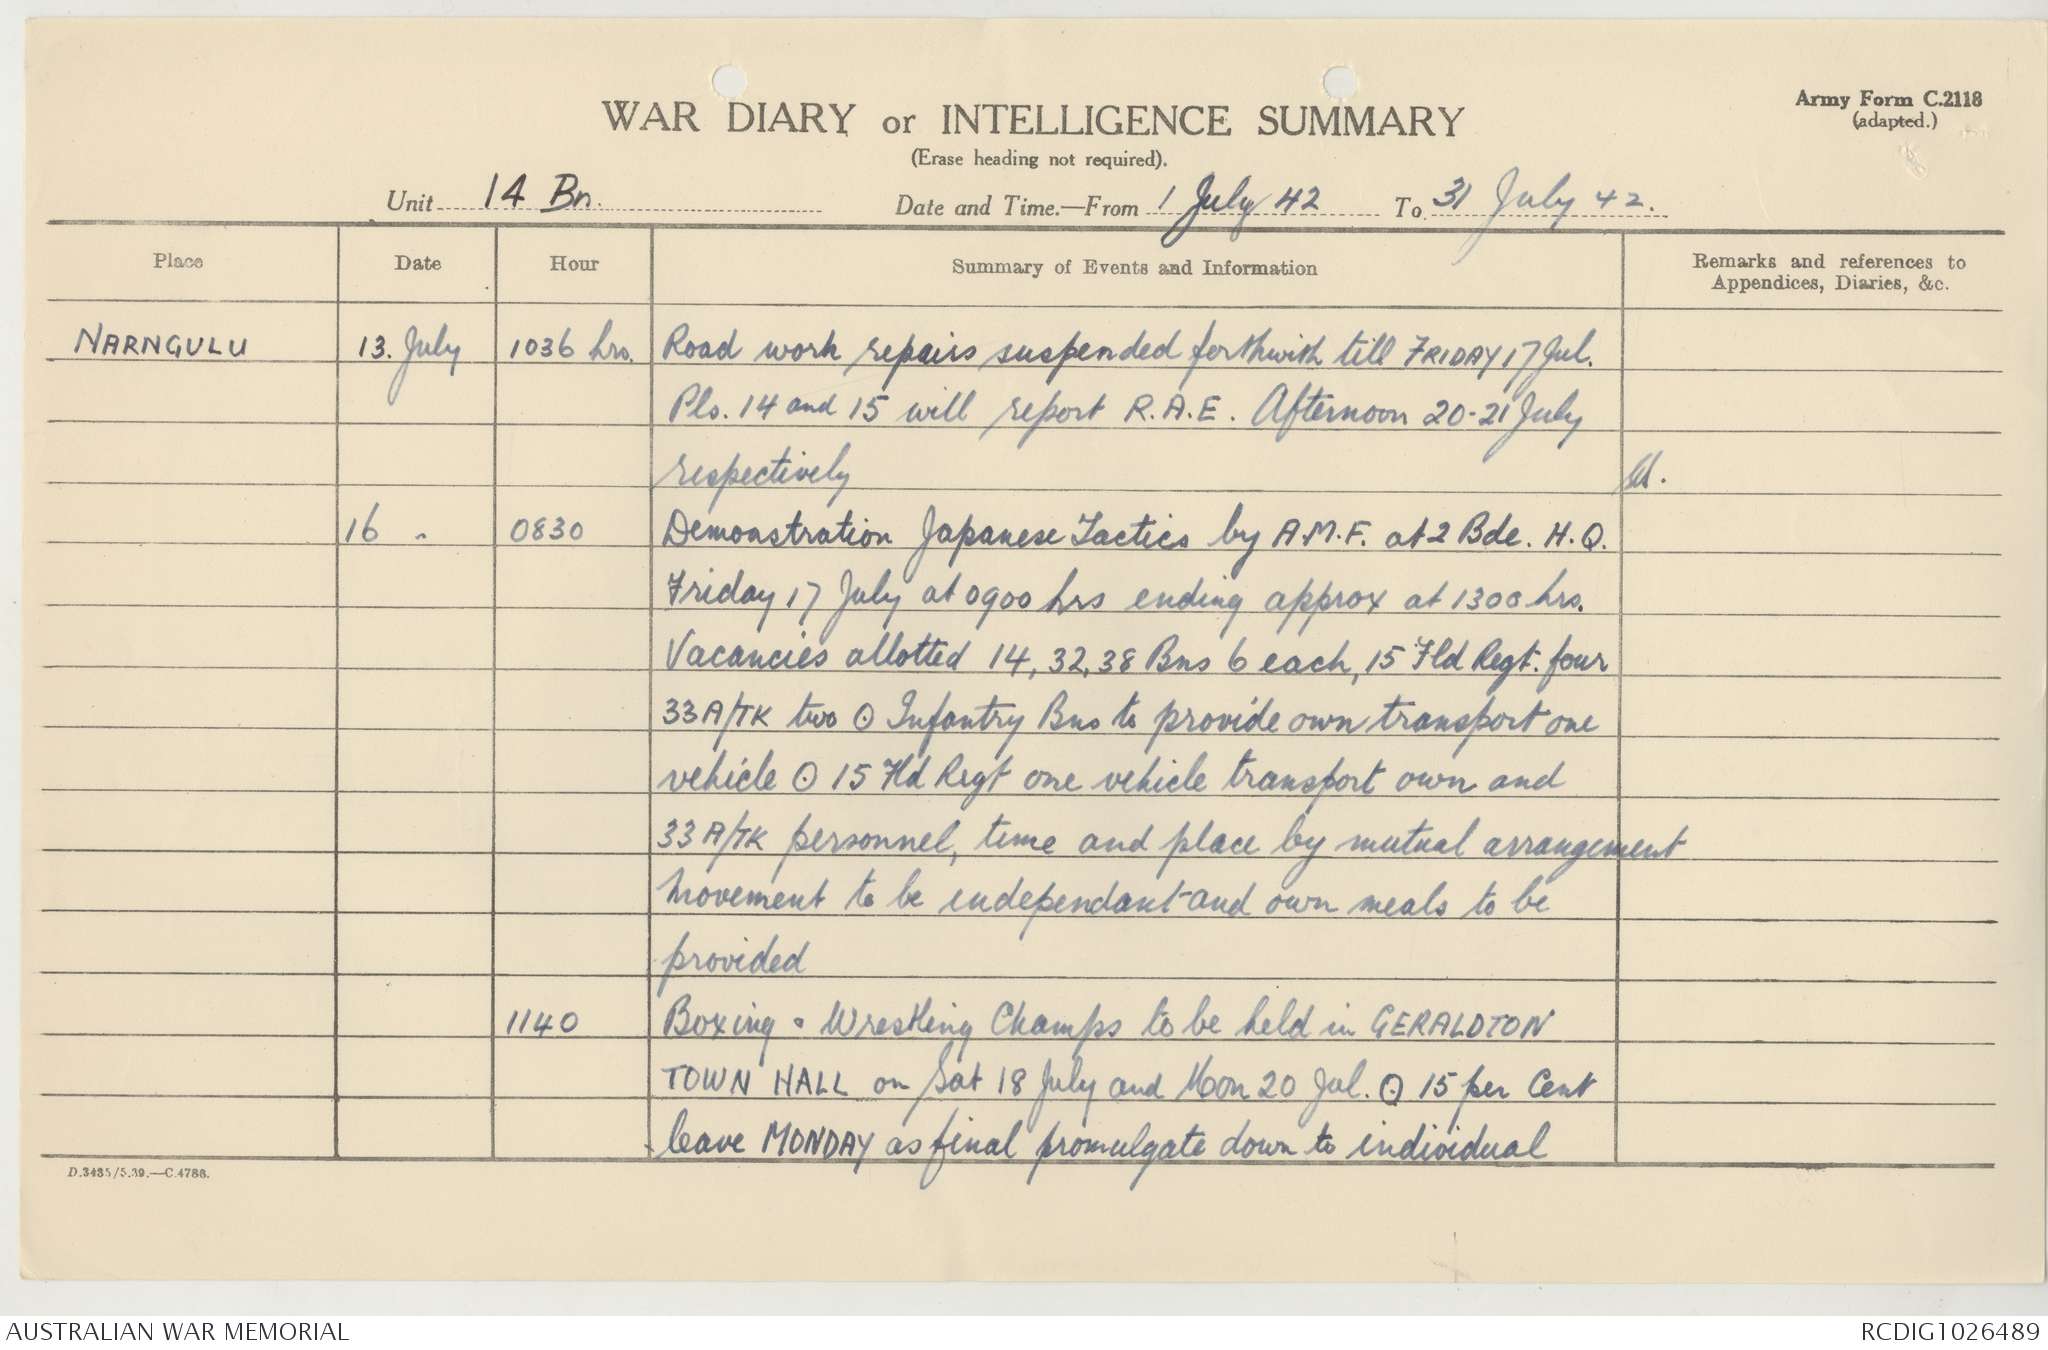 Army Form C.2118
(adapted.)
WAR DIARY or INTELLIGENCE SUMMARY
(Erase heading not required).
Unit 14 Bn. Date and Time.—From 1 July 42 To 31 July 42.
Place Date Hour Summary of Events and Information Remarks and references to
Appendices, Diaries, &c.
NARNGULU 13. July 1036 hrs. Road work repairs suspended forthwith till FRIDAY 17 Jul.
Pls. 14 and 15 will report R.A.E. Afternoon 20-21 July
respectively
16 " 0830 Demonstration Japanese Tactics by A.M.F. at 2 Bde. H.Q.
Friday 17 July at 0900 hrs ending approx at 1300 hrs.
Vacancies allotted 14, 32, 38 Bns 6 each, 15 Fld Regt. four
33 A/TK two ⊙ Infantry Bns to provide own transport one
vehicle ⊙ 15 Fld Regt one vehicle transport own and
33 A/TK personnel, time and place by mutual arrangement
Movement to be independant and own meals to be
provided
1140 Boxing & Wrestling Champs to be held in GERALDTON
TOWN HALL on Sat 18 July and Mon 20 Jul. ⊙ 15 per Cent
leave MONDAY as final promulgate down to individual
D.3435/5.39.—C.4786.
AUSTRALIAN WAR MEMORIAL RCDIG1026489